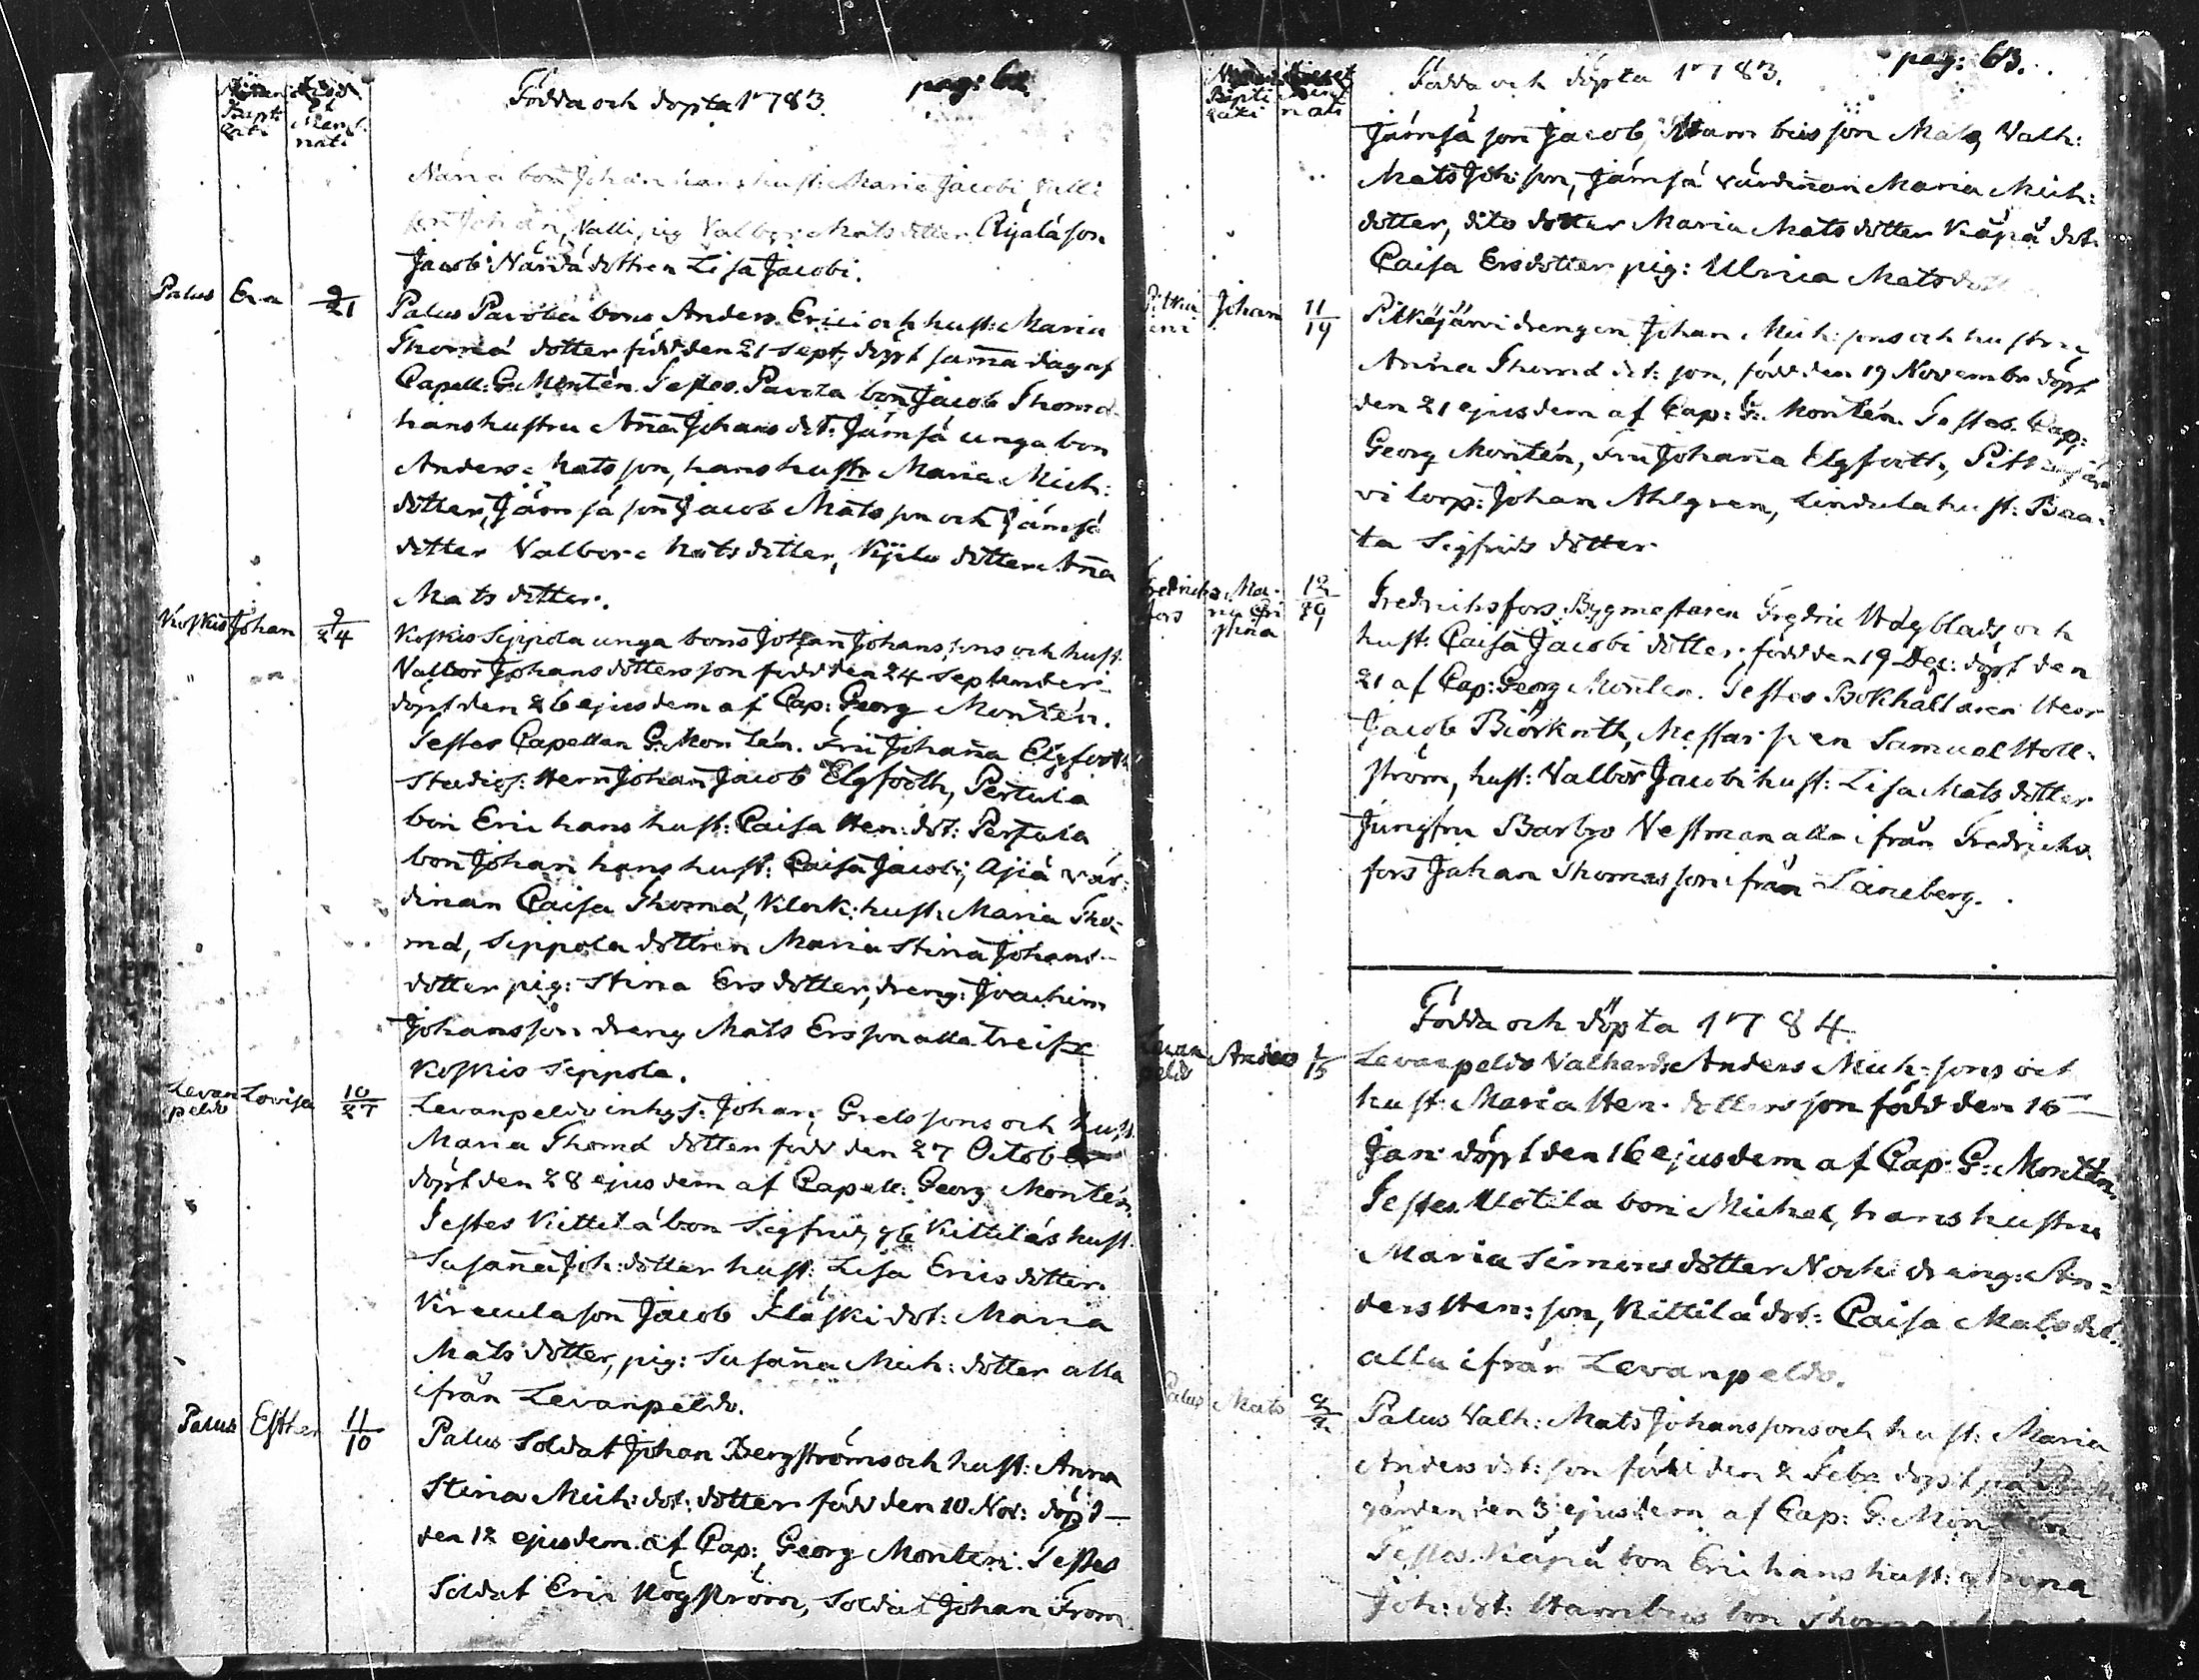 Födda och döpta 1783.
pag: 62.
Bapti
zati
nati
Johan hans hust: Maria Jacobi
Valli, pig Valbor Mats dotter, Rÿälä son
Jacob Närvä dottren Lisa Jacobi.
Palus Eva 9/21 Palus Pavola bons Anders Erici och hust: Maria
Thomæ dotter född den 21 Sept, döpt samma dag af
Capell: G: Montén. Testes. Pavola bon Jacob Thomæ
hans hustru Anna Johans dot: Jämsä unga bon
Anders Mats son, hans hustr Maria Mich:
dotter, Jämsä son Jacob Mats son och Jämsä
dotter Valbor Mats dotter, Kÿilo dotter Anna
Mats dotter.
Koskis Johan 9/24 Koskis Seppola unga bons Johan Johans sons och hust
Valbor Johans dotters son född den 24 September
döpt den 26 ejusdem af Cap: Georg Montén.
Testes Capellan G: Montén. Fru Johanna Elgfooth
Studios: Herr Johan Jacob Elgfooth, Pertula
bon Eric hans hust: Caisa Hen: dot: Pertula
bon Johan hans hust: Caisa Jacobi, Ajiä vär:
dinan Caisa Thomæ, Klock: hust: Maria Tho:
mæ, Seppola dottren Maria Stina Johans-
dotter pig: Stina Ers dotter, dreng: Joachim
Johansson dreng Mats Ersson alla
Koskis Seppola.
Levan Lovisa 10/27 Levanpeldo inhys: Johan Grels sons och hust
peldo
Maria Thomæ dotter född den 27 October
döpt den 28 ejusdem af Capell: Georg Montén
Testes Kittilä bon Sigfrid, Kittiläs hust
Susanna Joh: dotter hust: Lisa Erics dotter
son Jacob Kläski dot: Maria
Mats dotter, pig: Susanna Mich: dotter alla
ifrån Levanpeldo.
Palus Esther 11/10 Palus Soldat Johan Bergströms och hust: Anna
Stina Mich: dot: dotter född den 10 Nov: döpt
den 12 ejusdem af Cap: Georg Monten. Testes
Soldat Eric Högström, Soldat Johan From
Födda och döpta 1783.
pag: 63.
Bapti
zati nati
Jämsä son Jacob, son Mats, Valh:
Mats Joh: son, Jämsä värdinnan Maria Mich:
dotter, dito dotter Maria Mats dotter Käpä dot:
Caisa Ersdotter pig: Ulrica Matsdott
Johan 11/19 Pitkäjärvi drengen Johan Mich: sons och hustru
Anna Thomæ dot: son, född den 19 Novembr döpt
den 21 ejusdem af Cap: G: Montén. Testes. Cap:
Georg Montén, Fru Johanna Elgfooth, Pitkäjär
vi torp: Johan Ahlgren, Lindula hust: Bea-
ta Sigfrids dotter
Fredrichs Ma- 12/19 Fredrichsfors Bygmestaren Fredric Hägblads och
fors
stina
hust: Caisa Jacobi dotter, född den 19 Dec: döpt den
21 af Cap: Georg Monten. Testes Bokhållaren Herr
Jacob Biörknth, Samuel Holl-
ström, hust: Valbor Jacobi hust: Lisa Mats dotter
Jungfru Barbro Vestman alla ifrån Fredrichs
fors Johan Thomasson ifrån Laneberg.
Födda och döpta 1784.
Levan Anders 1/15 Levanpeldo Valherds Anders Mich: sons och
peldo
hust: Maria Hen: dotters son född den 15
Jan: döpt den 16 ejusdem af Cap: G: Montén.
Testes Uotila bon Michel, hans hustru
Maria Simons dotter Nocki dreng: An=
ders Hen: son, Kittilä dot: Caisa Mats dot:
alla ifrån Levanpeldo.
Palus Mats 2/2 Palus Valh: Mats Johans sons och hust: Maria
Anders dot: son född den 2 Febr döpt på
gården den 3 ejusdem af Cap: G: Montén
Testes. Käpä bon Eric hans hust:
Joh: dot: Hambus bon Thomas